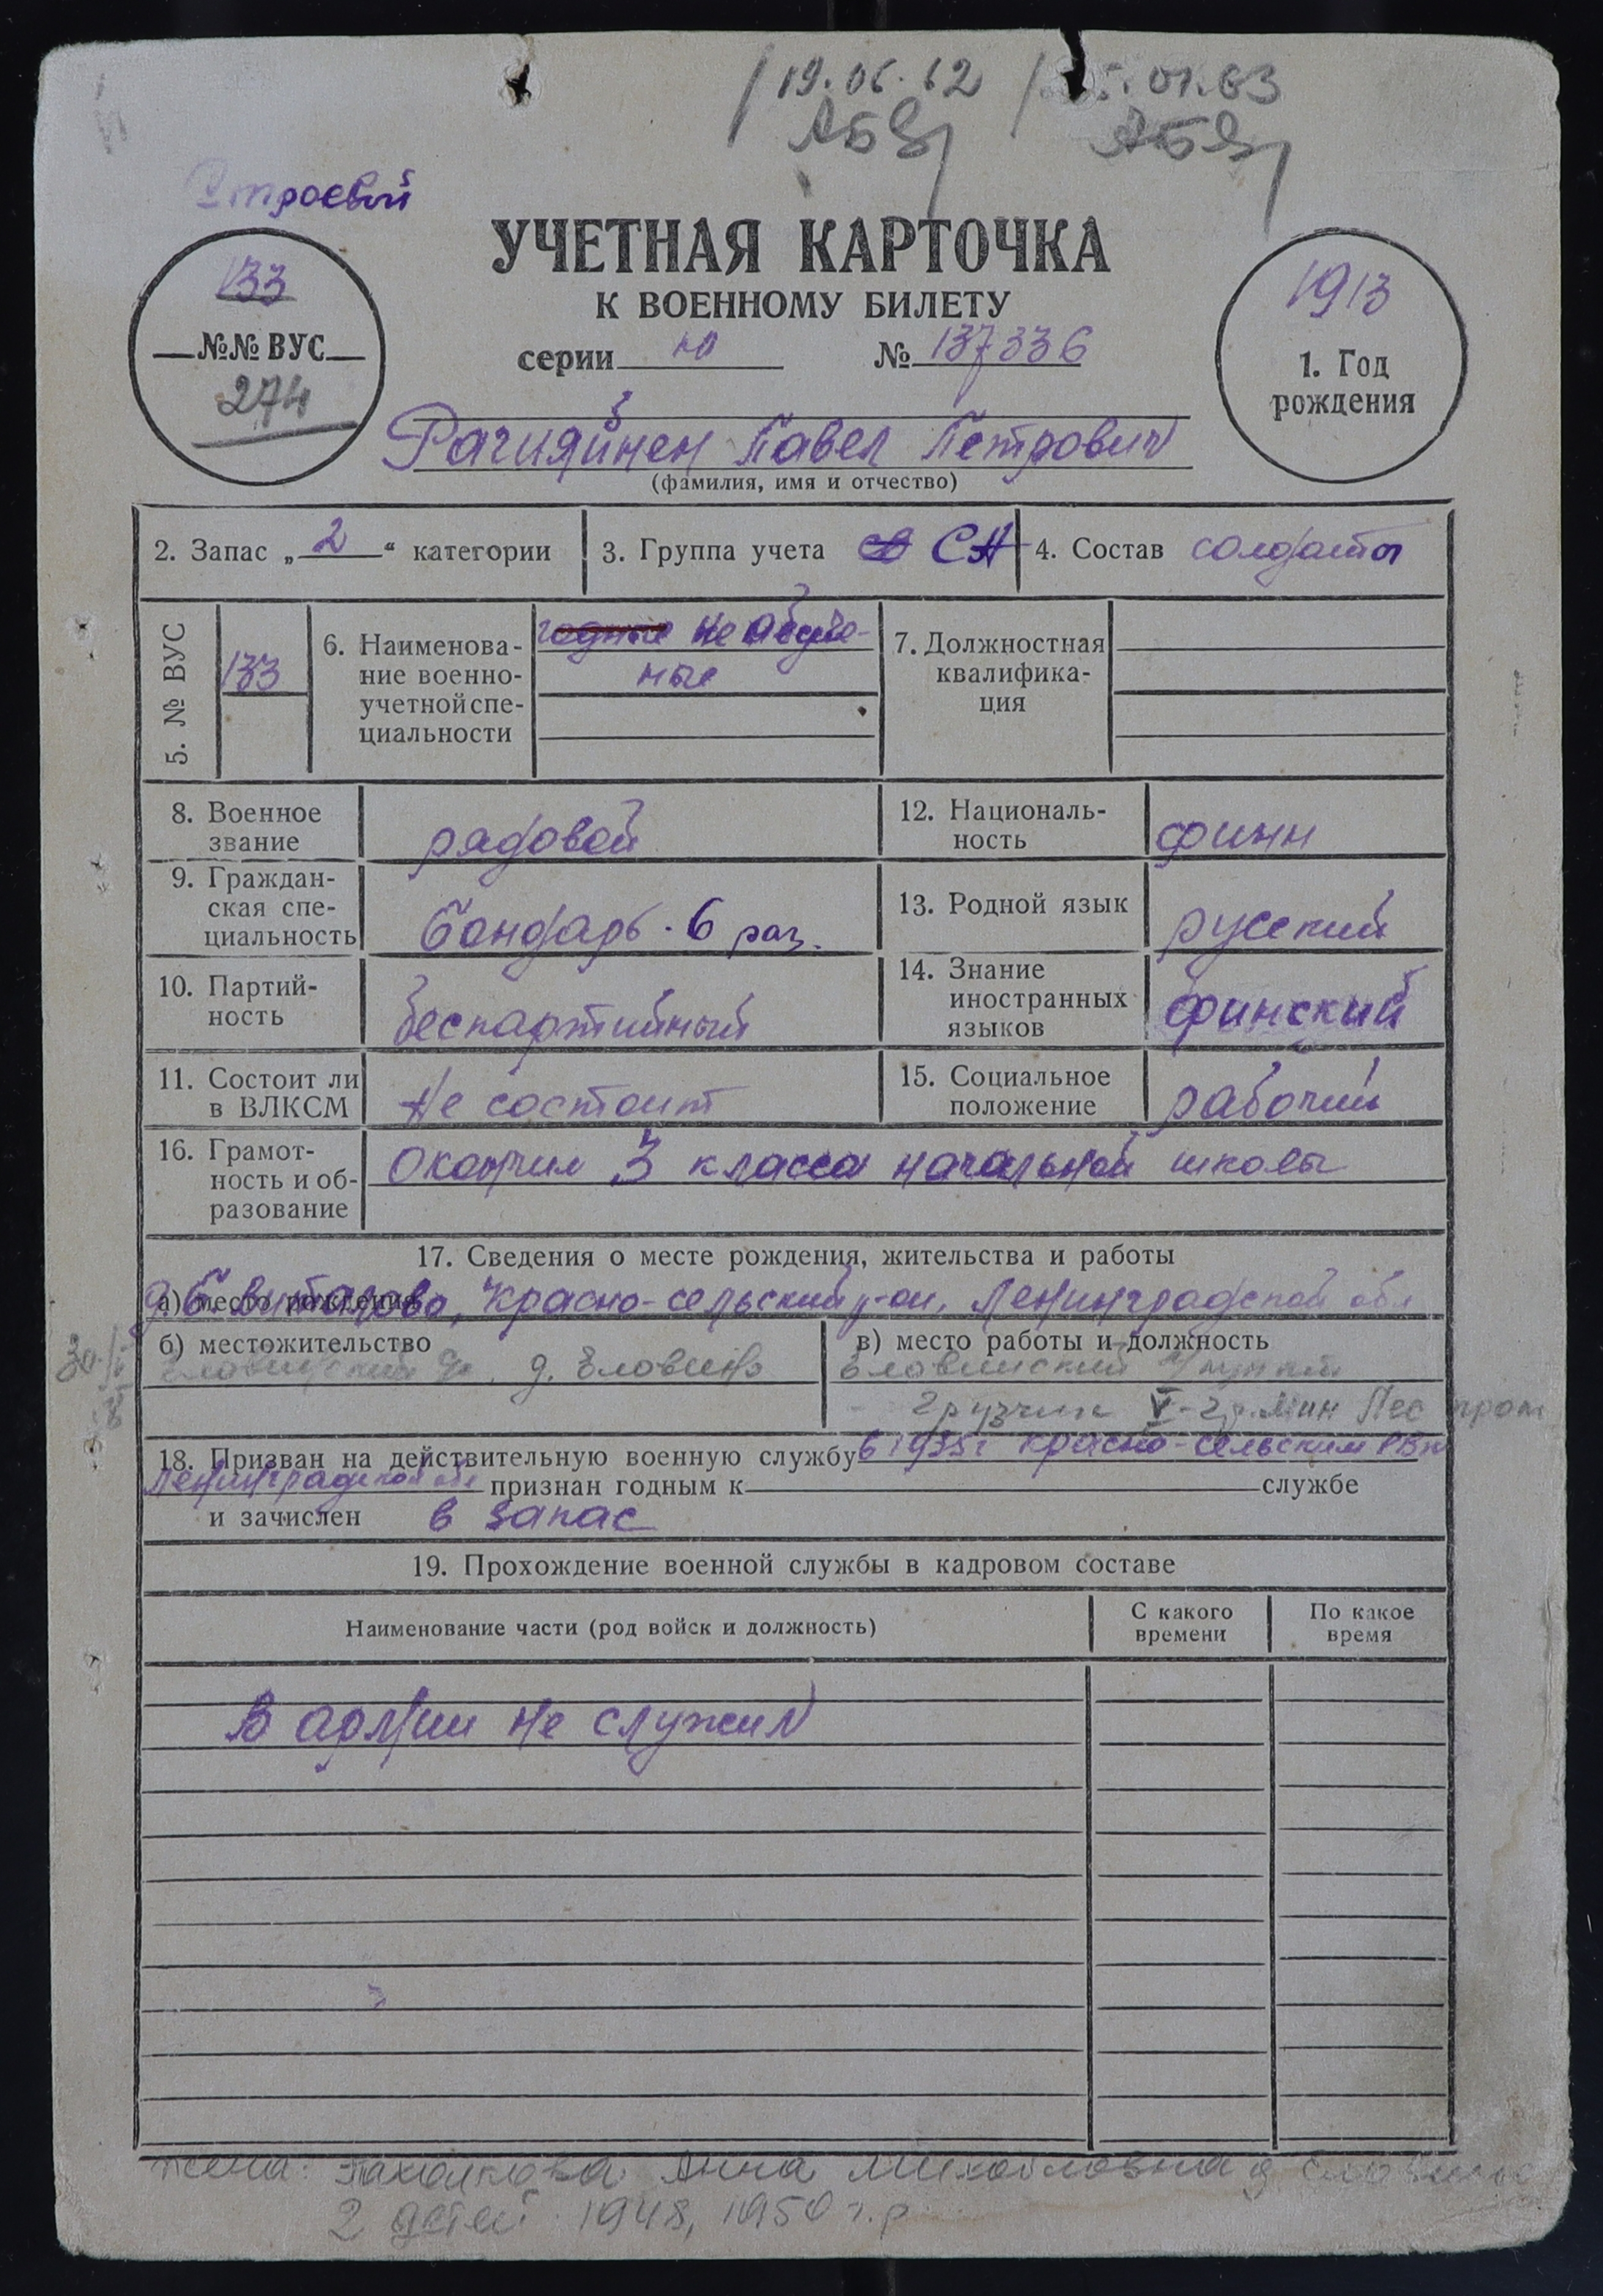 19.06.62
Строевой
УЧЕТНАЯ КАРТОЧКА
К ВОЕННОМУ БИЛЕТУ
133
№№ ВУС
274
серии но № 137336
1913
1. Год
рождения
Павел Петрович
(фамилия, имя и отчество)
2. Запас „ 2 “ категории
3. Группа учета СА
4. Состав солдаты
5. № ВУС
133
6. Наименова-
ние военно-
учетной спе-
циальности
годные не обуче-
ные
7. Должностная
квалифика-
ция
8. Военное
звание
рядовой
12. Националь-
ность
финн
9. Граждан-
ская спе-
циальность
бондарь. 6 раз.
13. Родной язык
русский
10. Партий-
ность
беспартийный
14. Знание
иностранных
языков
финский
11. Состоит ли
в ВЛКСМ
не состоит
15. Социальное
положение
рабочий
16. Грамот-
ность и об-
разование
окончил 3 класса начальной школы
17. Сведения о месте рождения, жительства и работы
а) место рождения
Красно-сельский р-он, Ленинградской обл
б) местожительство
д. Еловино
в) место работы и должность
Еловинский
грузчик V-
18. Призван на действительную военную службу в 1935 г Красно-сельским РВК
Ленинградской обл признан годным к службе
и зачислен в запас
19. Прохождение военной службы в кадровом составе
Наименование части (род войск и должность)
С какого
времени
По какое
время
В армии не служил
жена: Анна Михайловна д.
2 детей 1948, 1950 г.р